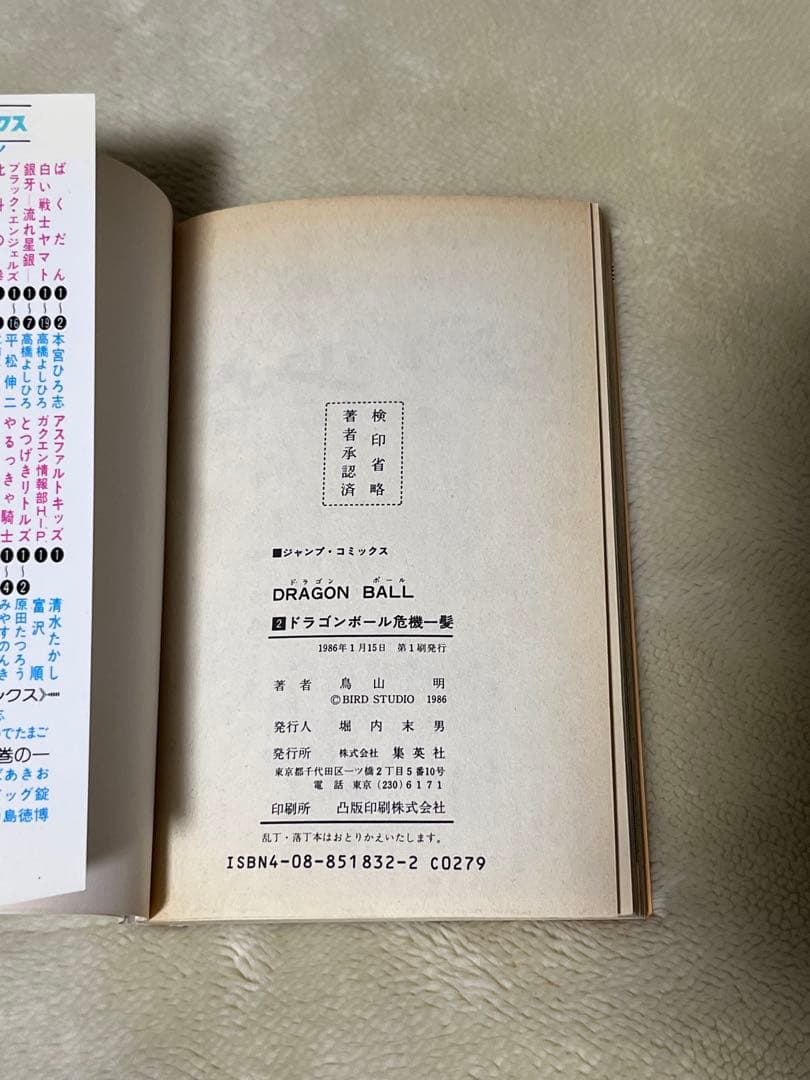 クス
ばくだん ❶〜❷ 本宮ひろ志
白い戦士ヤマト ❶〜⓳ 高橋よしひろ
銀牙―流れ星銀― ❶〜❼ 高橋よしひろ
ブラック・エンジェルズ ❶〜⓰ 平松伸二
アスファルトキッズ ❶ 清水たかし
ガクエン情報部H.I.P. ❶ 富沢 順
とつげきリトルズ ❶〜❷ 原田たつろう
やるっきゃ騎士 ❶〜❹ みやすのんき
ックス》
でたまご
巻の一
あきお
ッグ錠
島徳博
検印省略
著者承認済
■ジャンプ・コミックス
ドラゴン ボール
DRAGON BALL
2 ドラゴンボール危機一髪
1986年1月15日 第1刷発行
著者 鳥山 明
©BIRD STUDIO 1986
発行人 堀内末男
発行所 株式会社 集英社
東京都千代田区一ツ橋2丁目5番10号
電話 東京(230)6171
印刷所 凸版印刷株式会社
乱丁・落丁本はおとりかえいたします。
ISBN4-08-851832-2 C0279